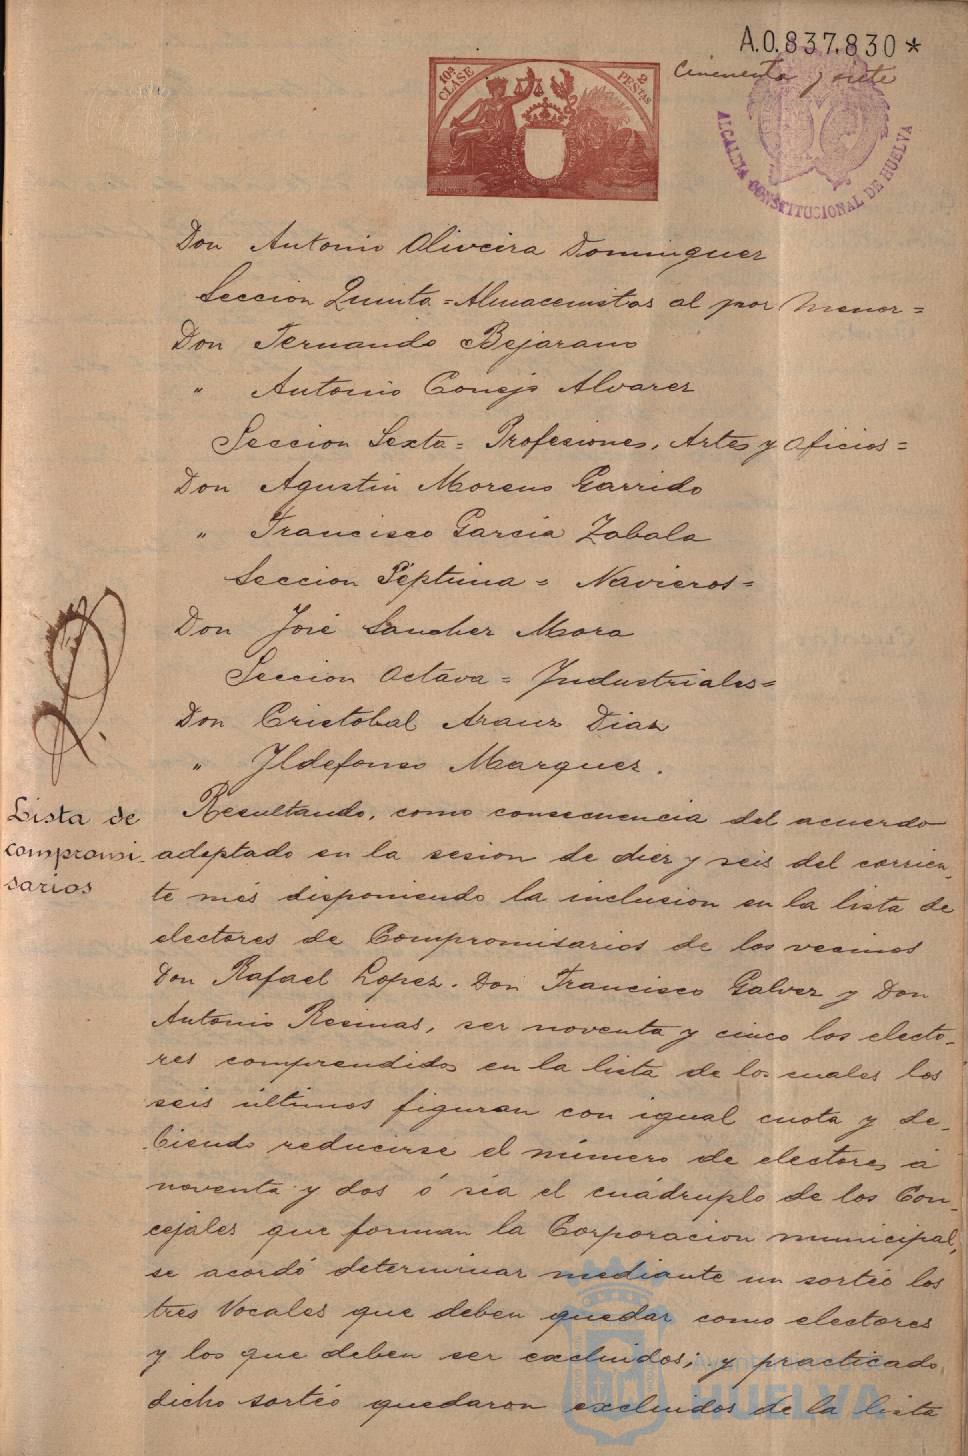 A.0.837.830*
Cincuenta y siete
10ª CLASE
2 PESTAS
ALCALDIA CONSTITUCIONAL DE HUELVA
Don Antonio Oliveira Dominguez
Seccion Quinta = Almacenistas al por Menor =
Don Fernando Bejarano
" Antonio Conejo Alvarez
Seccion Sexta = Profesiones, Artes y Oficios =
Don Agustin Moreno Garrido
" Francisco Garcia Zabala
Seccion Séptima = Navieros =
Don José Sanchez Mora
Seccion Octava = Industriales =
Don Cristobal Arauz Diaz
" Ildefonso Marquez.
Lista de
compromi-
sarios
Resultando, como consecuencia del acuerdo
adoptado en la sesion de diez y seis del corrien-
te més disponiendo la inclusion en la lista de
electores de Compromisarios de los vecinos
Don Rafael Lopez. Don Francisco Galvez y Don
Antonio Recinas, ser noventa y cinco los electo-
res comprendidos en la lista de los cuales los
seis últimos figuran con igual cuota y de-
biendo reducirse el número de electores á
noventa y dos ó séa el cuádruplo de los Con-
cejales que forman la Corporacion municipal,
se acordó determinar mediante un sortéo los
tres Vocales que deben quedar como electores
y los que deben ser excluidos; y practicado
dicho sortéo quedaron excluidos de la lista
Ayuntamiento de
HUELVA